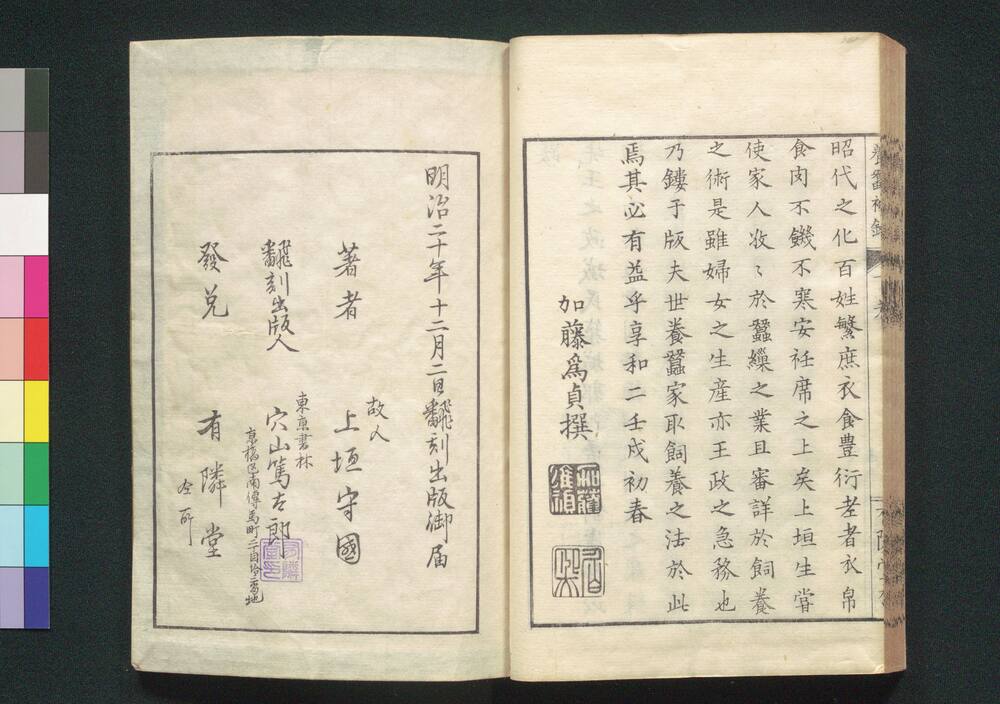 昭代之化百姓繁庶衣食豊衍老者衣帛
食肉不饑不寒安衽席之上矣上垣生嘗
使家人孜〻於蠶繅之業且審詳於飼養
之術是雖婦女之生産亦王政之急務也
乃鏤于版夫世養蠶家取飼養之法於此
焉其必有益乎享和二壬戌初春
加藤爲貞撰
明治二十年十二月二日飜刻出版御届
著者 故人 上垣守國
飜刻出版人 東京書林 穴山篤太郎
京橋区南傳馬町二丁目
發兌 有隣堂
仝所